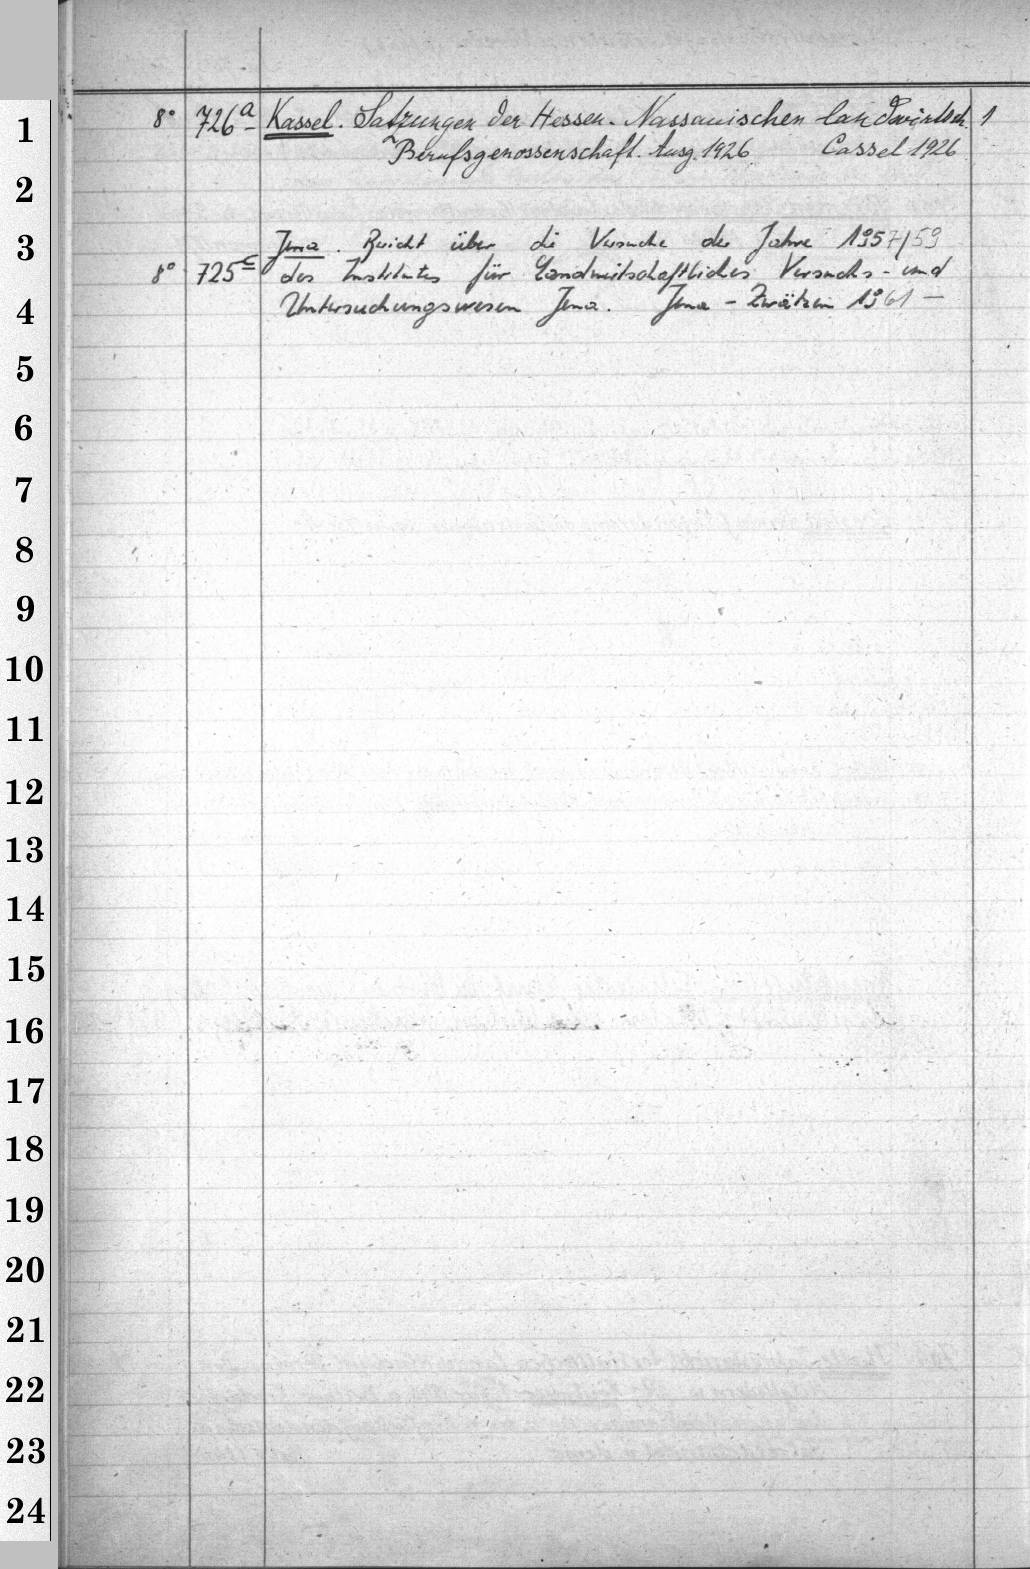 8° 726a Kassel. Satzungen der Hessen-Nassauischen landwirtsch. 1
Berufsgenossenschaft. Ausg. 1926 Cassel 1926
Jena. Bericht über die Versuche der Jahre 1957/59
8° 725c des Institutes für Landwirtschaftliches Versuchs- und
Untersuchungswesen Jena. Jena - Zwätzen 1961 -
1
2
3
4
5
6
7
8
9
10
11
12
13
14
15
16
17
18
19
20
21
22
23
24